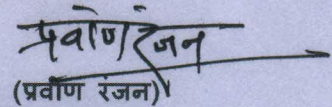 प्रवीण रंजन
(प्रवीण रंजन)